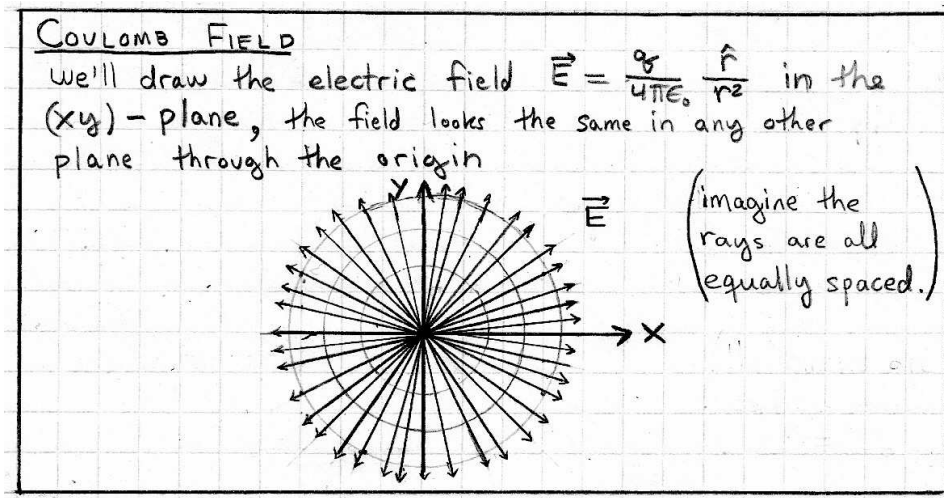 COULOMB FIELD
we'll draw the electric field E⃗ = q/4πϵ₀ r̂/r² in the
(xy) - plane, the field looks the same in any other
plane through the origin
y
E⃗
(imagine the
rays are all
equally spaced.)
x